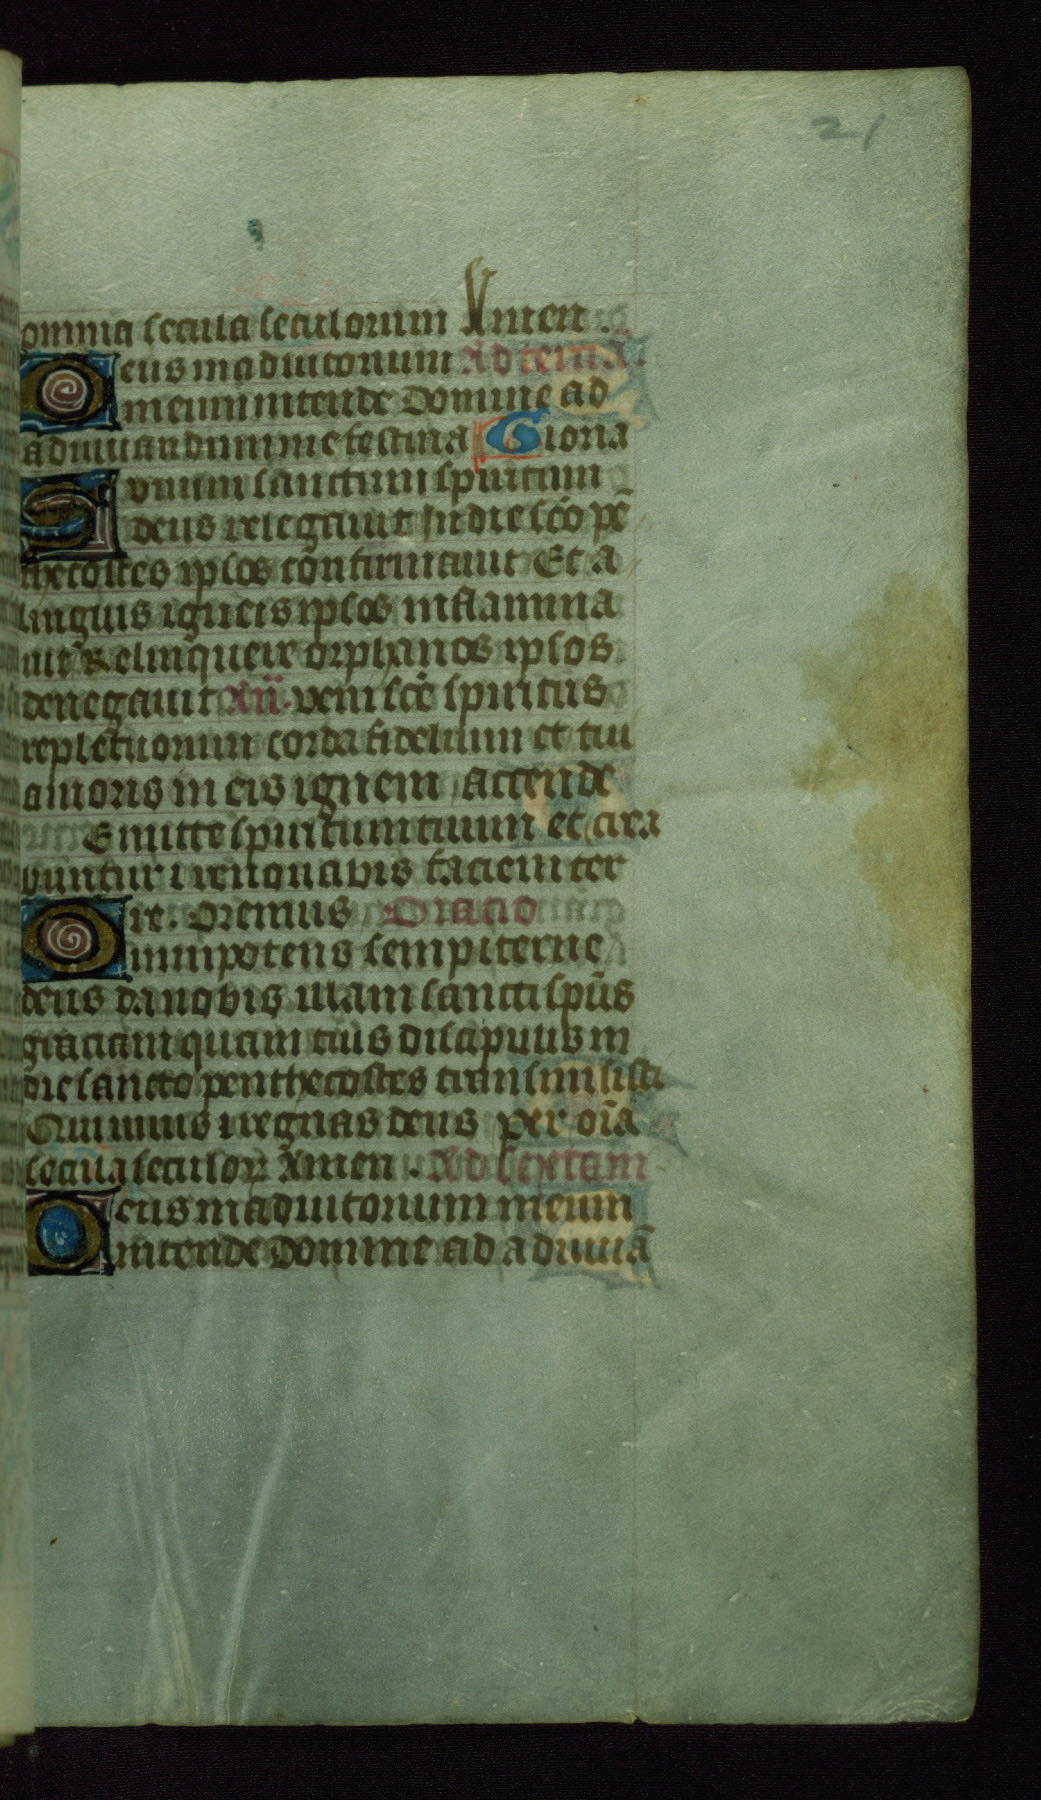 21
omnia secula seculorum Amen.
Deus in adiutorium Ad terciã.
meum intende Domine ad
adiuuandum me festina Gloria
Suum sanctum spiritum
deus relegauit In die scõ pẽ
thecostes ipsos confirmauit Et a
linguis igneis ipsos inflamma
uit Relinquere orphanos ipsos
denegauit Añ. veni scẽ spiritus
reple tuorum corda fidelium et tui
amoris in eis ignem accende
Emitte spiritum tuum et crea
buntur i renouabis faciem ter
re. Oremus Oracio
Omnipotens sempiterne
deus da nobis illam sancti spũs
graciam quam tuis discipulis in
die sancto penthecostes transmisisti
Qui uiuis i regnas deus per oĩa
secula seculorꝝ Amen. Ad sextam
Deus in adiutorium meum
intende Domine ad adiuuã